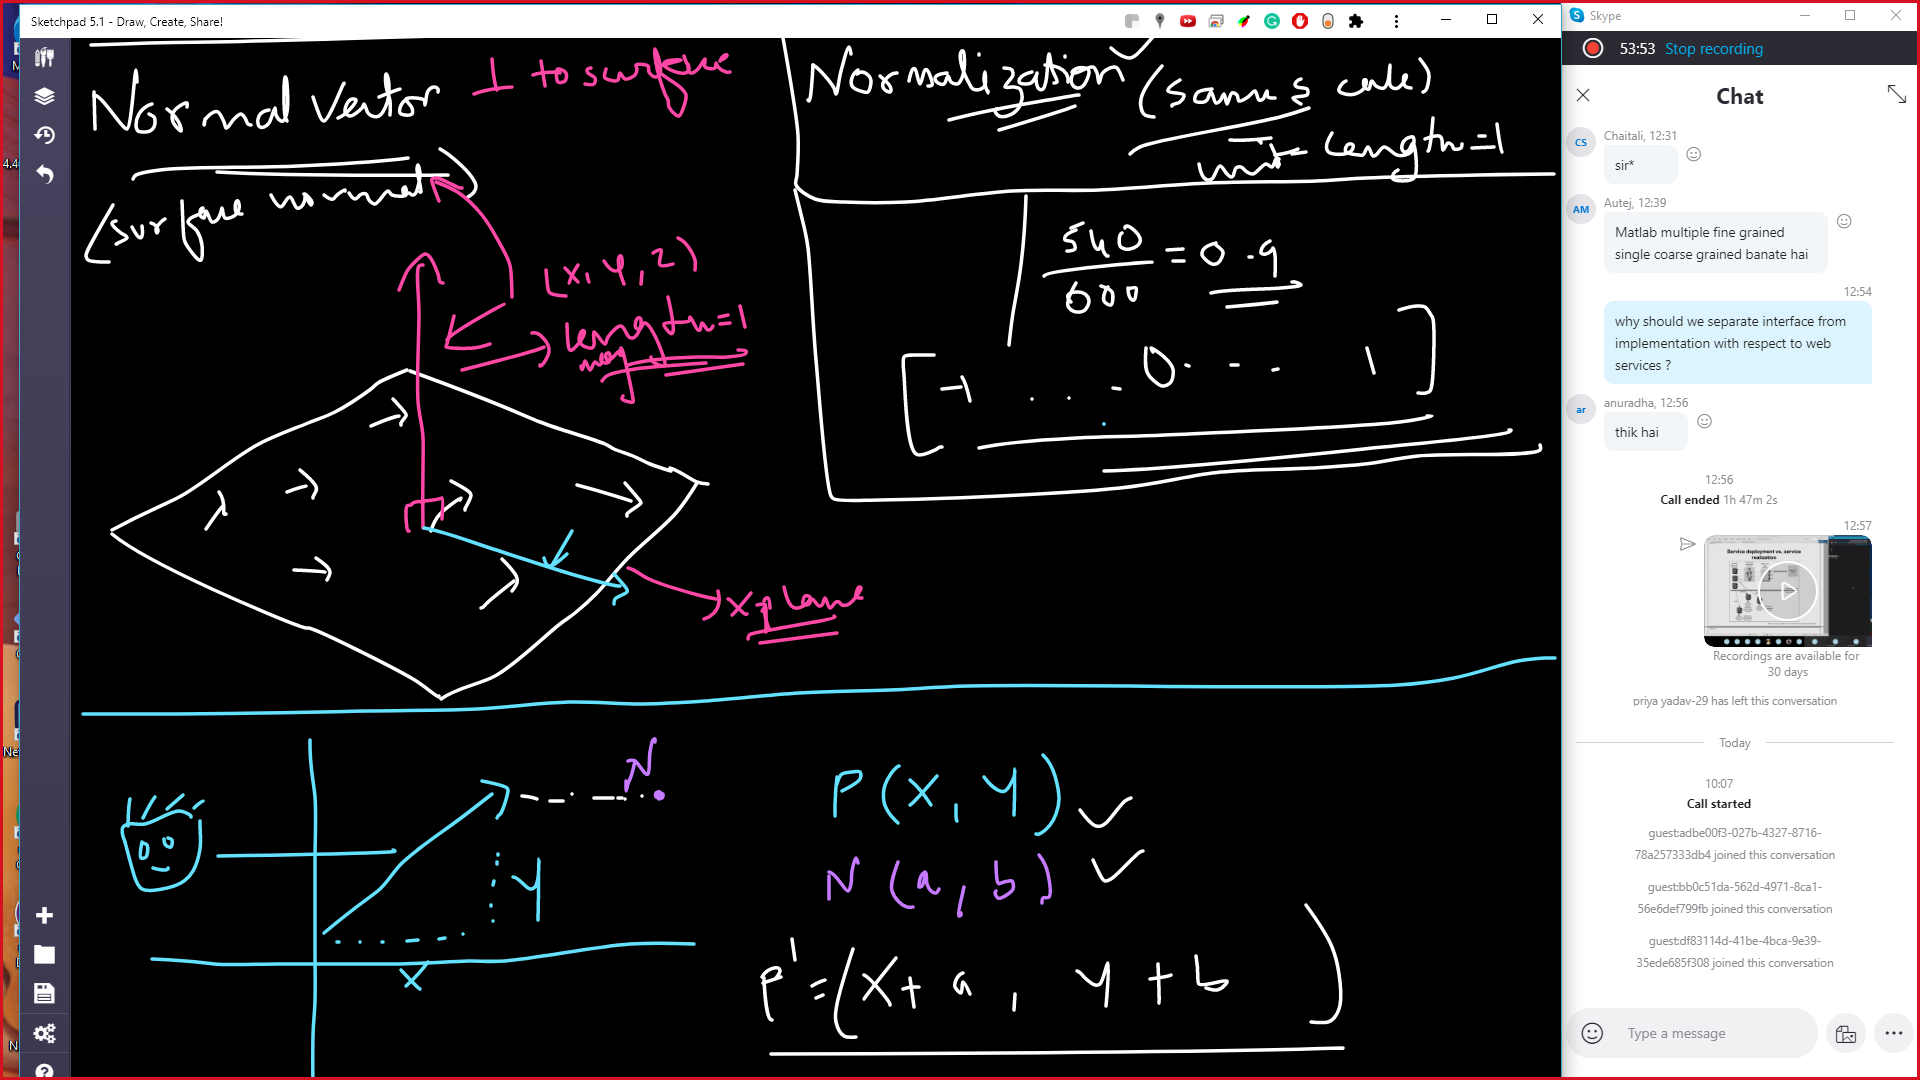 Sketchpad 5.1 - Draw, Create, Share!
Normal Vector
⊥ to surface
(surface normal)
(x, y, z)
length=1
mag
x plane
Normalization
(same scale)
unit length=1
540
600
= 0.9
[-1 . . . 0 . - . 1]
N
y
x
P (x, y)
N (a, b)
P' = (x+a, y+b)
Skype
53:53 Stop recording
Chat
CS
Chaitali, 12:31
sir*
AM
Autej, 12:39
Matlab multiple fine grained
single coarse grained banate hai
12:54
why should we separate interface from
implementation with respect to web
services ?
ar
anuradha, 12:56
thik hai
12:56
Call ended 1h 47m 2s
12:57
Service deployment vs. service
realization
Recordings are available for
30 days
priya yadav-29 has left this conversation
Today
10:07
Call started
guest:adbe00f3-027b-4327-8716-
78a257333db4 joined this conversation
guest:bb0c51da-562d-4971-8ca1-
56e6def799fb joined this conversation
guest:df83114d-41be-4bca-9e39-
35ede685f308 joined this conversation
Type a message